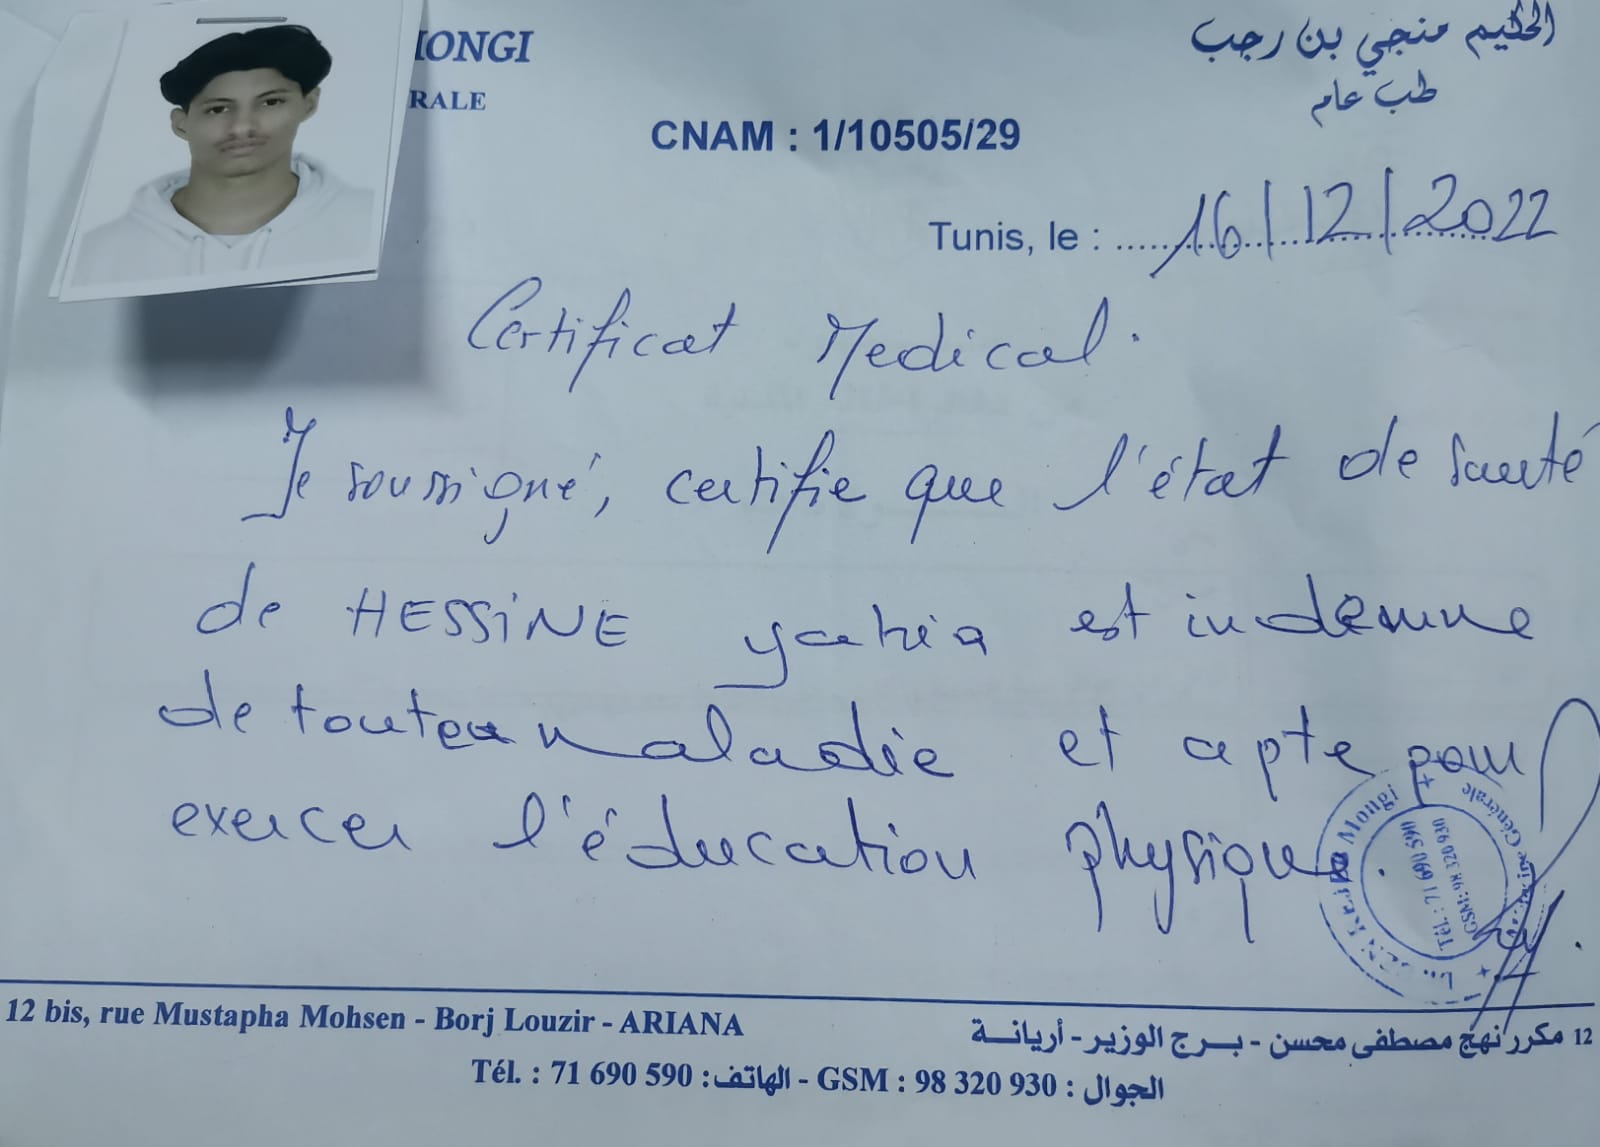 MONGI
RALE
الحكيم منجي بن رجب
طب عام
CNAM : 1/10505/29
Tunis, le : 16/12/2022
Certificat Medical.
Je soussigné, certifie que l'état de santé
de HESSINE yahia est indemne
de toute maladie et apte pour
exercer l'éducation physique.
Mongi
Générale
Tél. : 71 690 590
GSM: 98 320 930
12 bis, rue Mustapha Mohsen - Borj Louzir - ARIANA
12 مكرر نهج مصطفى محسن - بـرج الوزير - أريانــة
Tél. : 71 690 590 : الهاتف - GSM : 98 320 930 : الجوال